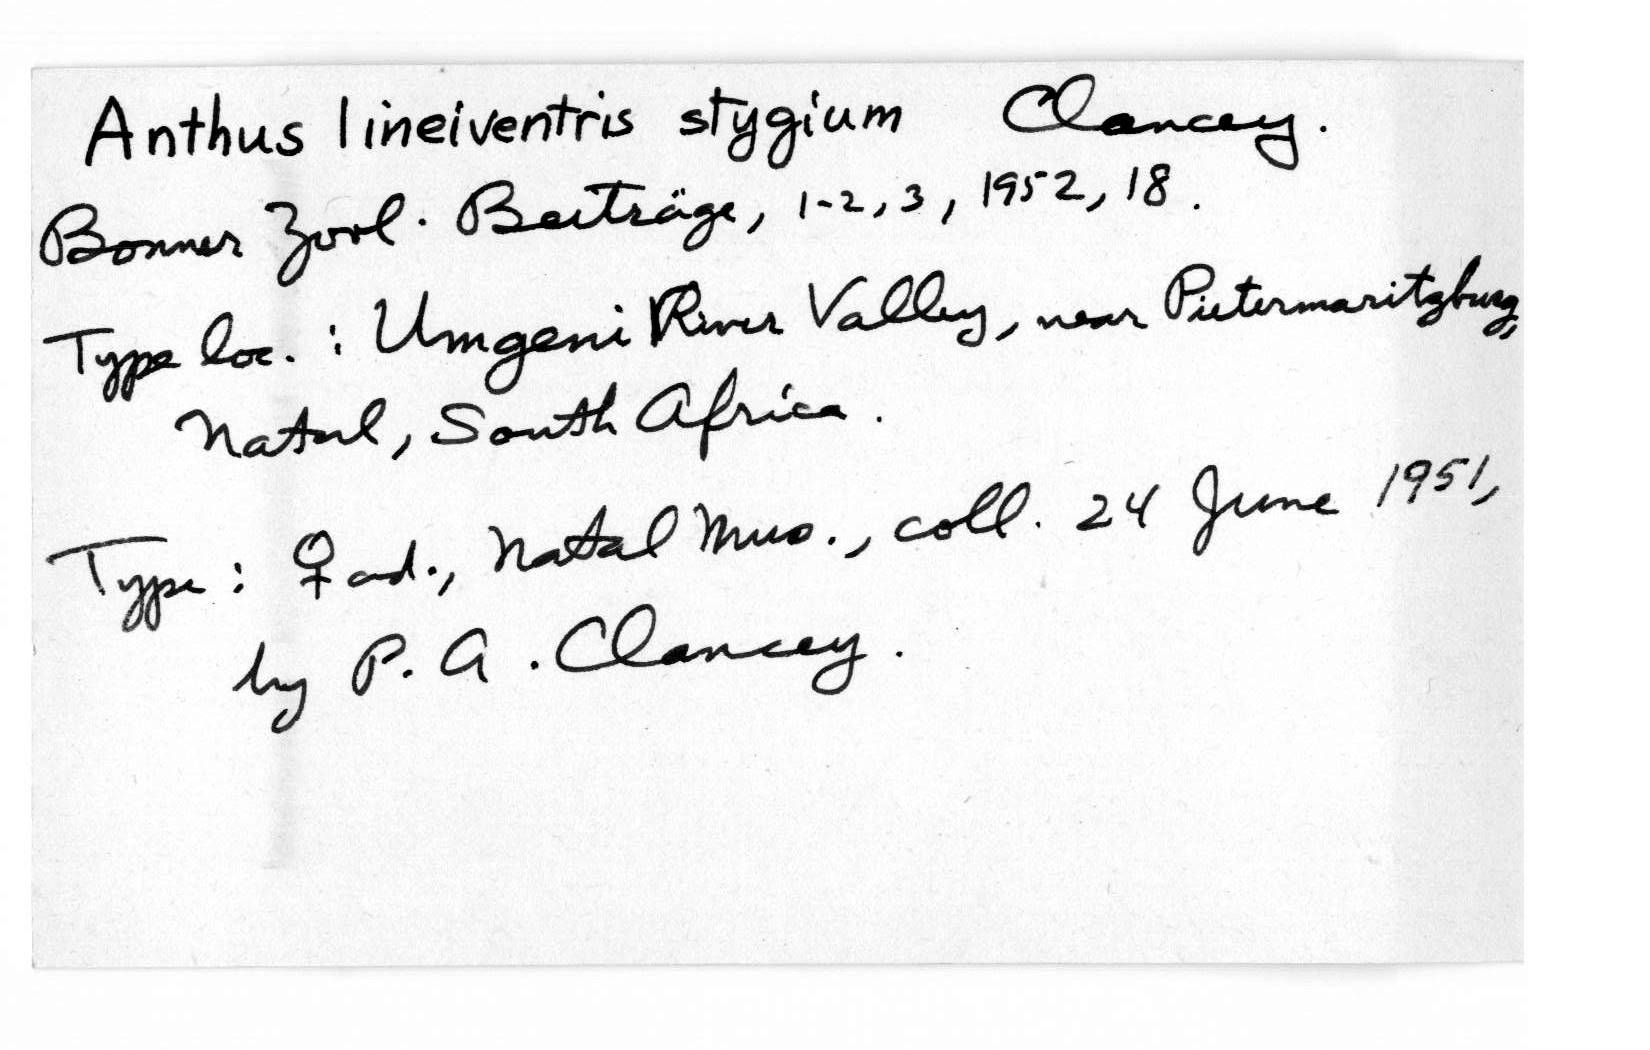 Anthus lineiventris stygium Clancey.
Bonner Zool. Beiträge, 1-2, 3, 1952, 18.
Type loc. : Umgeni River Valley, near Pietermaritzburg,
Natal, South Africa.
Type : ♀ ad., Natal Mus., coll. 24 June 1951,
by P. A. Clancey.